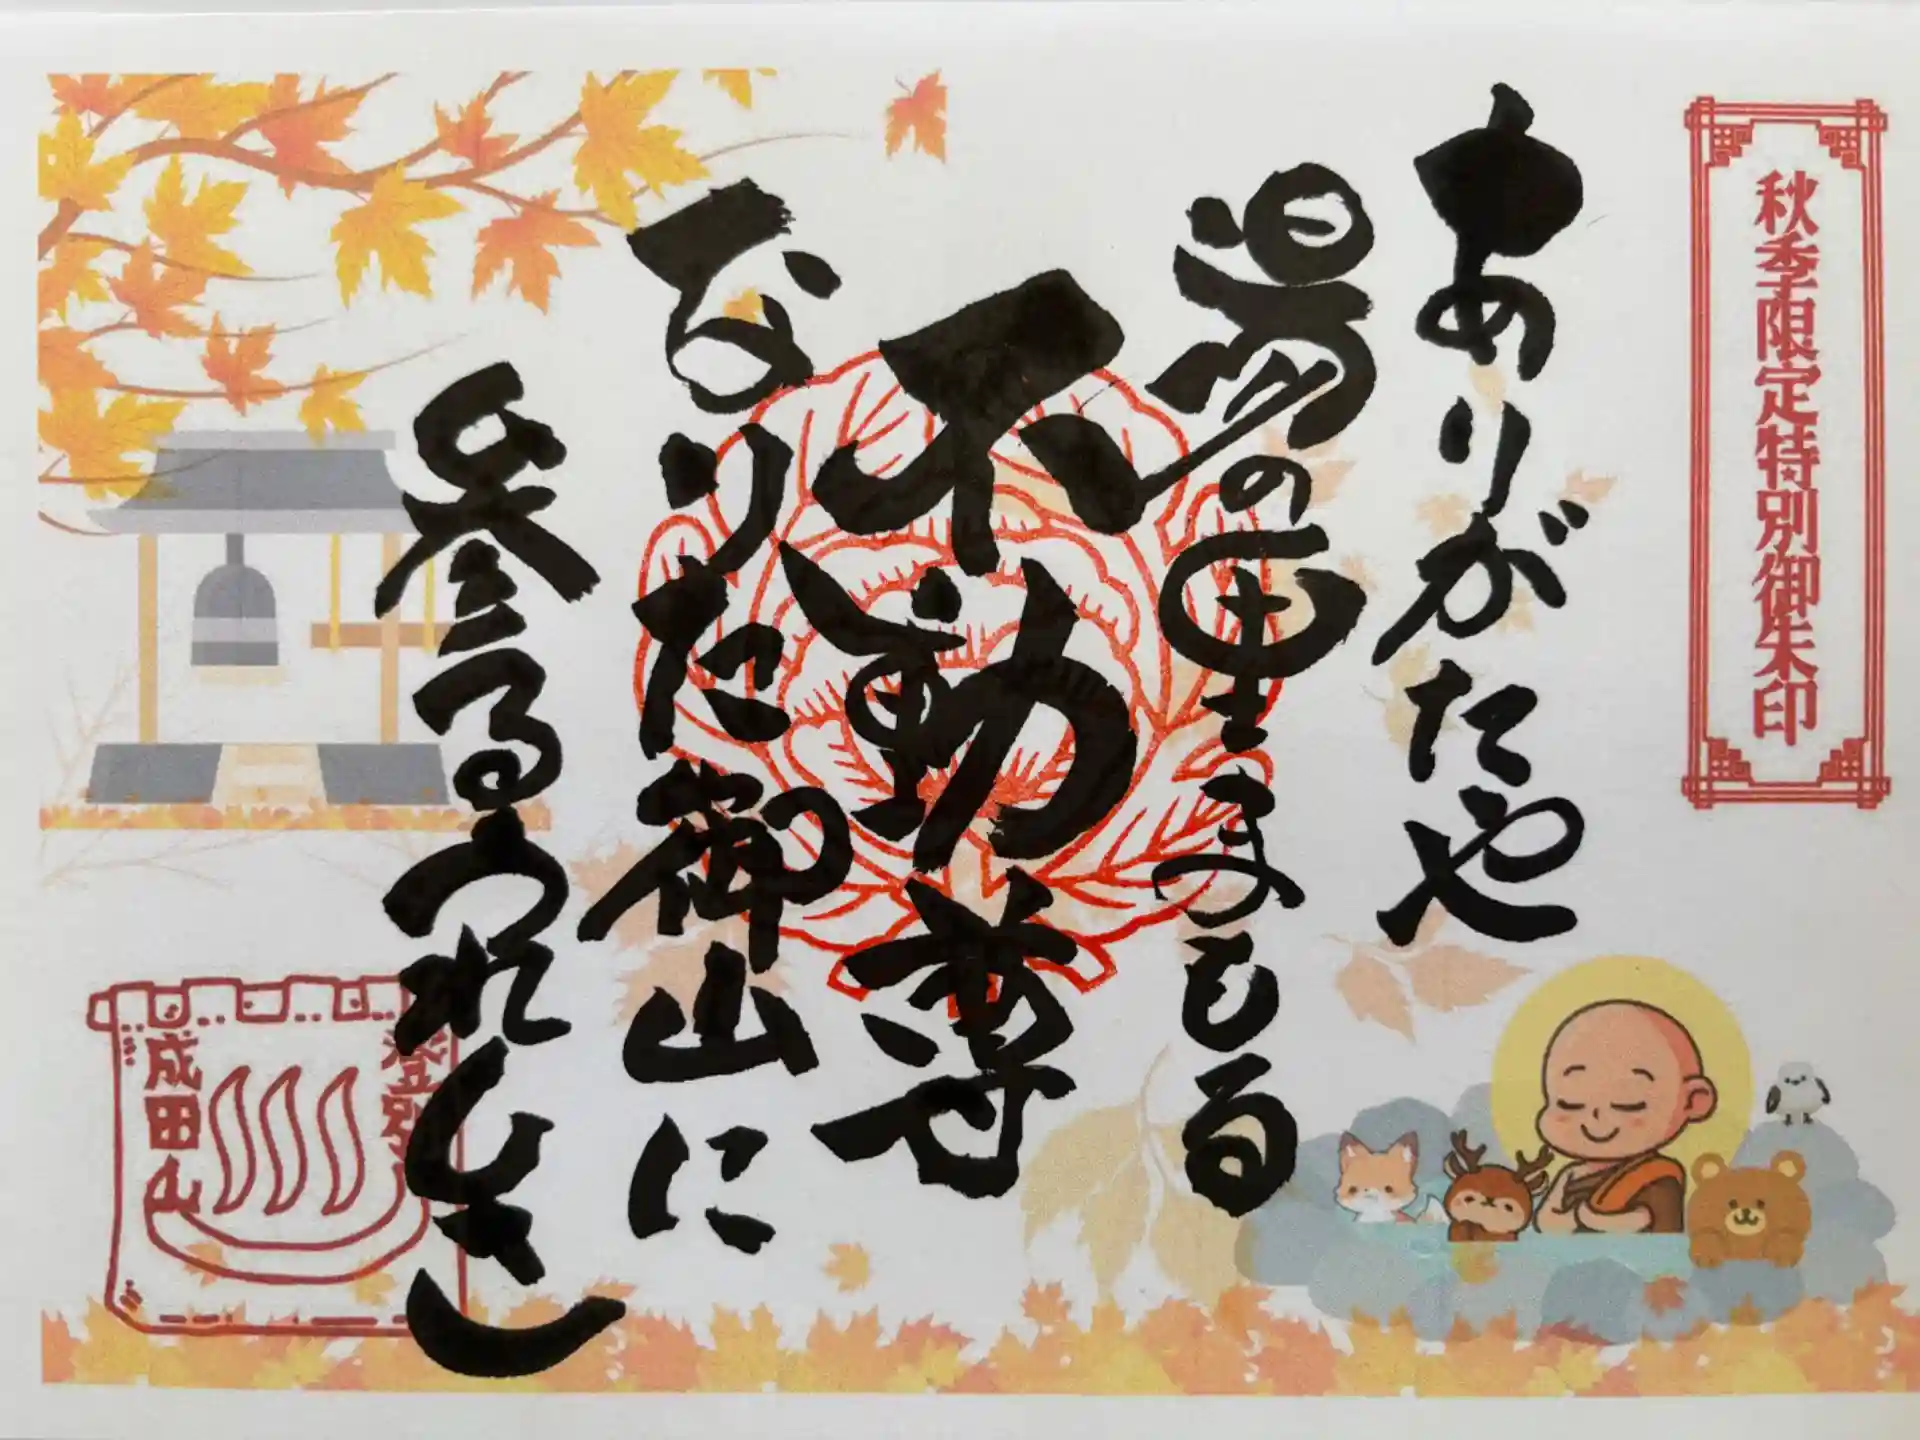 秋季限定特別御朱印
ありがたや
湯の里まもる
不動尊
なりた御山に
参るうれしさ
登別
成田山